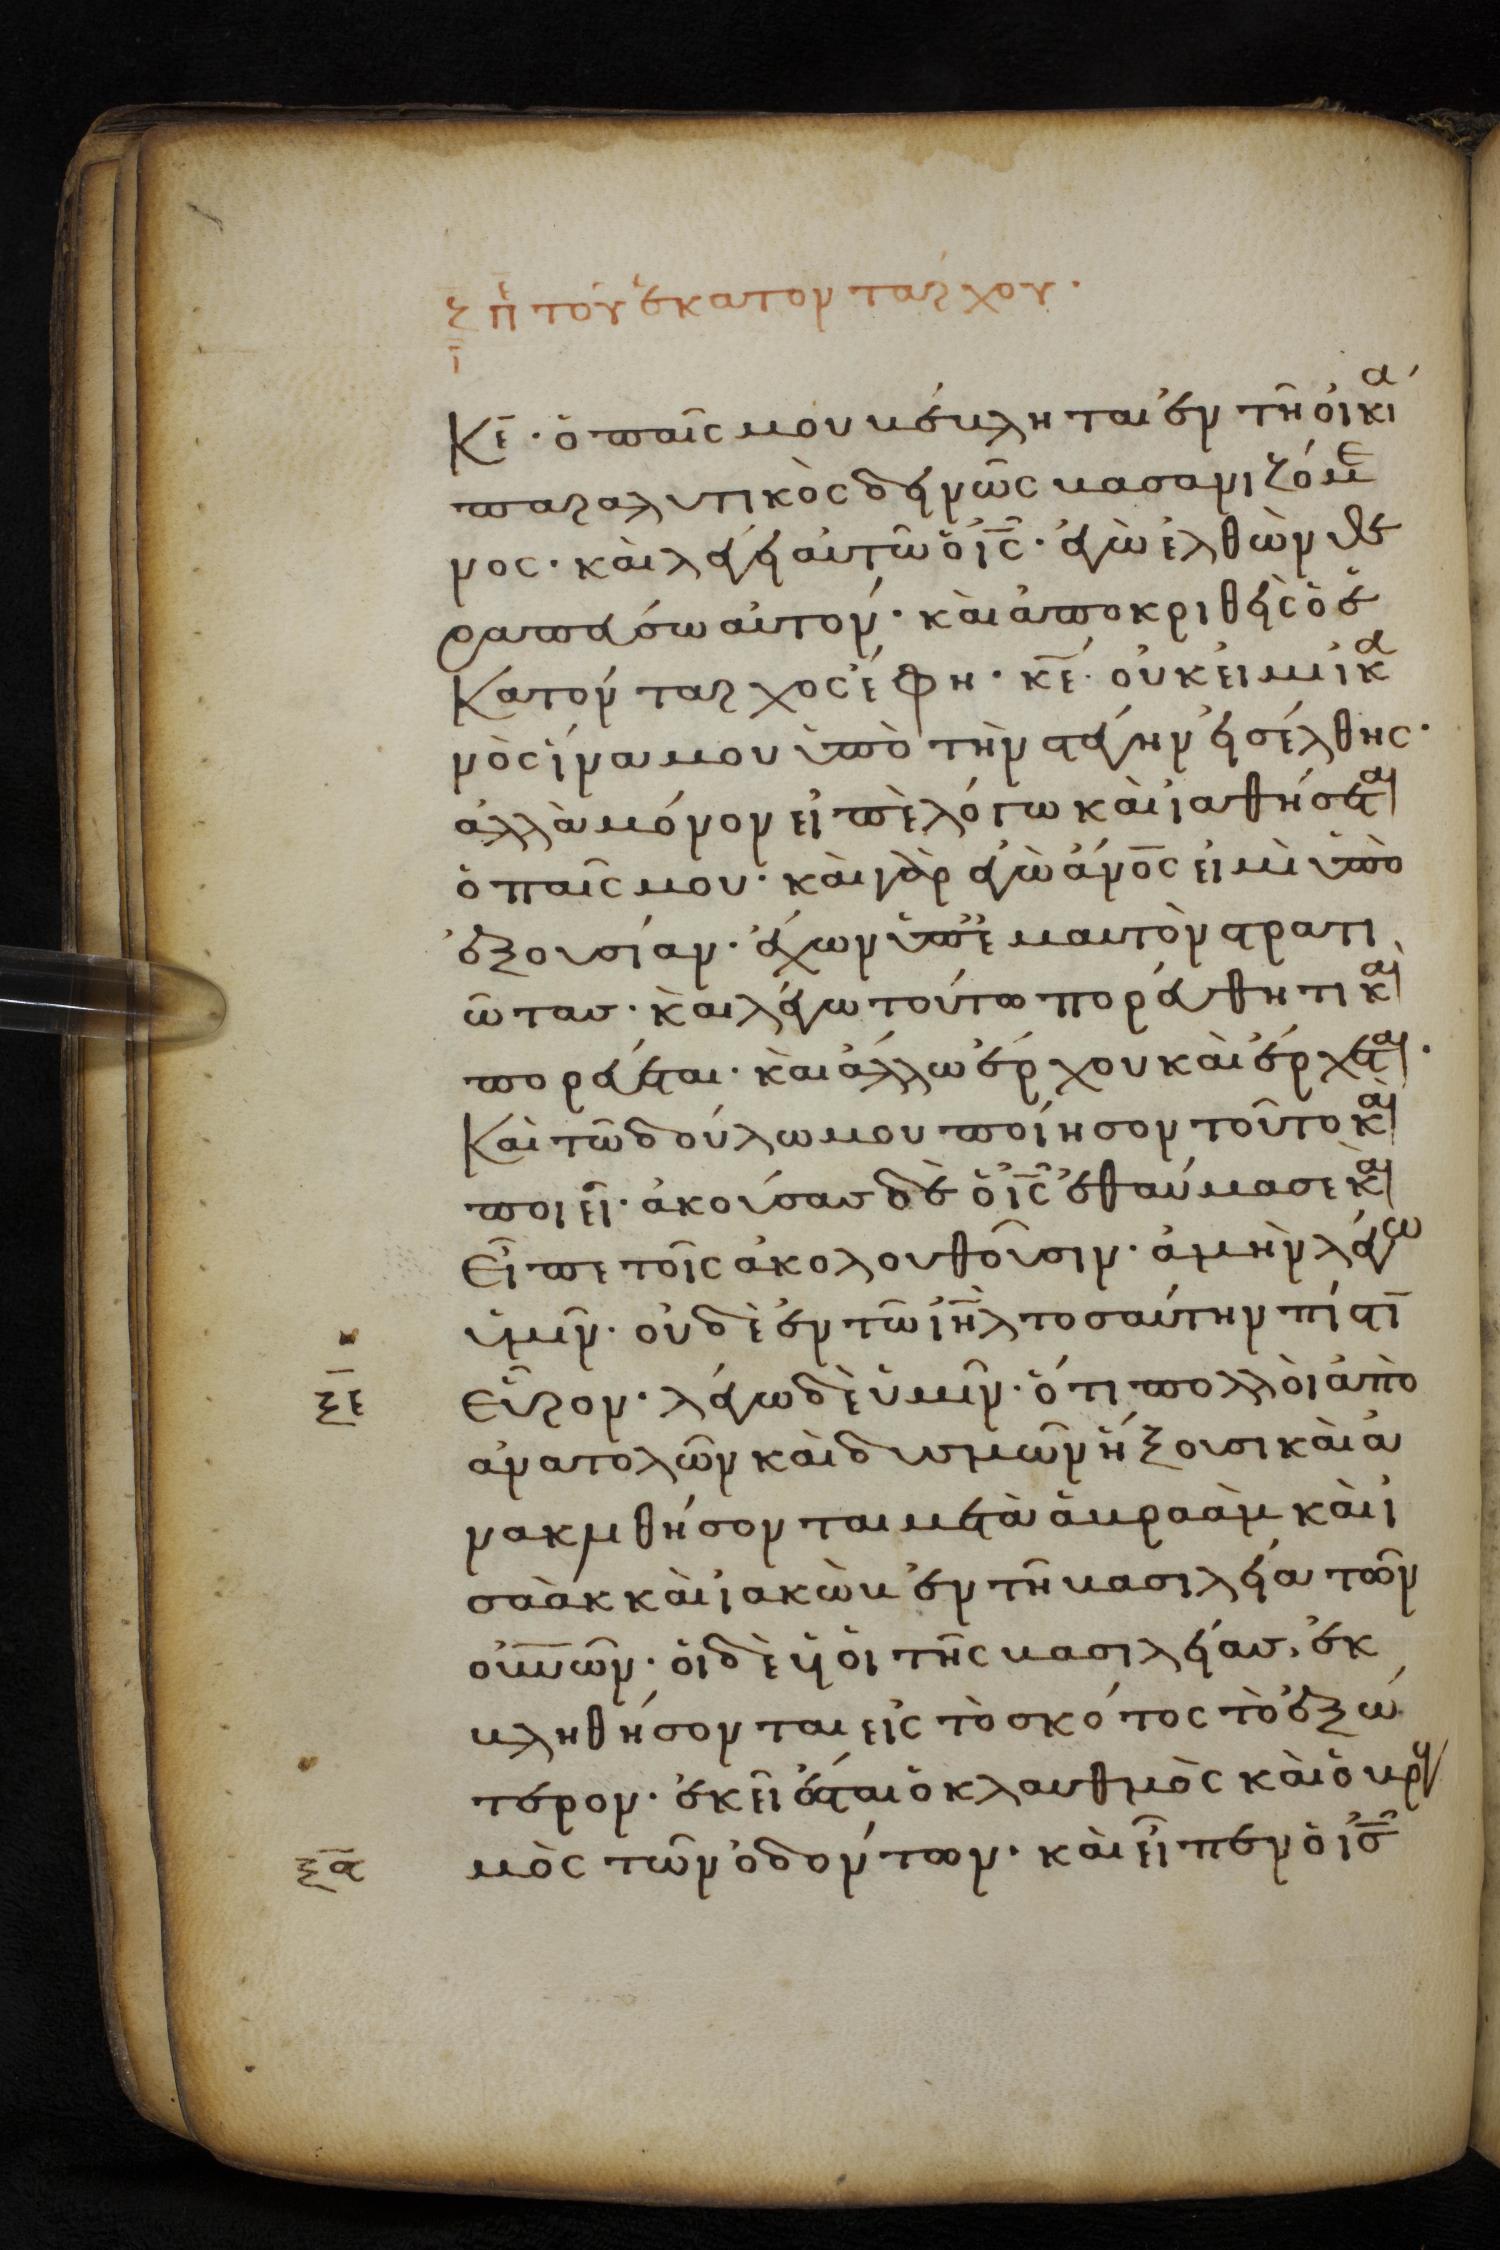 ζ πε τοῦ ἑκατοντάρχου·
ι̅
Κε̅· ὁ παῖς μου βέβληται ἐν τῆ οἰκία
παραλυτικὸς δεινῶς βασανιζόμε
νος· καὶ λέγει αὐτῶ ὁ ις̅· ἐγὼ ἐλθὼν θε
ραπεύσω αὐτόν· καὶ ἀποκριθεὶς ὁ ἑ
κατόνταρχος ἔφη· κε̅· οὐκ εἰμὶ ἱκα
νὸς ἵνα μου ὑπὸ τὴν στέγην εἰσέλθης·
ἀλλὰ μόνον εἰπὲ λόγω καὶ ἰαθήσεται
ὁ παῖς μου· καὶ γὰρ ἐγὼ ἄνο̅ς εἰμὶ ὑπὸ
ἐξουσίαν· ἔχων ὑπ' ἐμαυτὸν στρατι
ῶτας· καὶ λέγω τούτω πορεύθητι καὶ
πορεύεται· καὶ ἄλλω ἔρχου καὶ ἔρχεται·
Καὶ τῶ δούλω μου ποίησον τοῦτο καὶ
ποιεῖ· ἀκούσας δὲ ὁ ις̅ ἐθαύμασε καὶ
εἶπε τοῖς ἀκολουθοῦσιν· ἀμὴν λέγω
ὑμῖν· οὐδὲ ἐν τῶ ιη̅λ τοσαύτην πίστι̅
ξε̅ εὗρον· λέγω δὲ ὑμῖν· ὅτι πολλοὶ ἀπὸ
ἀνατολῶν καὶ δυσμῶν ἥξουσι καὶ ἀ
νακλιθήσονται μετὰ ἀβραὰμ καὶ ἰ
σαὰκ καὶ ἰακὼβ ἐν τῆ βασιλεία τῶν
οὐν̅ῶν· οἱ δὲ υἱοὶ τῆς βασιλείας, ἐκ
βληθήσονται εἰς τὸ σκότος τὸ ἐξώ
τερον· ἐκεῖ ἔσται ὁ κλαυθμὸς καὶ ὁ βρυγ
ξϛ̅ μὸς τῶν ὀδόντων· καὶ εἶπεν ὁ ις̅